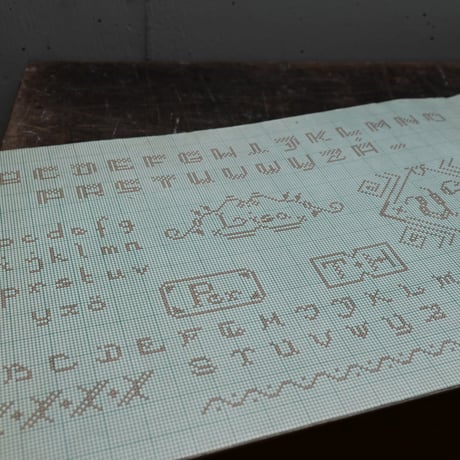 C D E F G H I J K L M N O
P R S T U V W Y Z
Lisa
b c d e f g
i j k l m n
p r s t u v
y z ö
Per
T·H
A B C D E F G H I J K L M
S T U V W Y Z